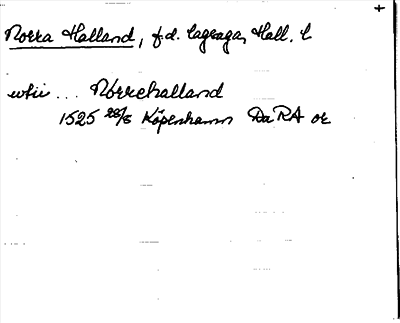 Norra Halland, f.d. lagsaga, Hall. l
utii ... Nörrehalland
1525 28/6 Köpenhamn Da RA or